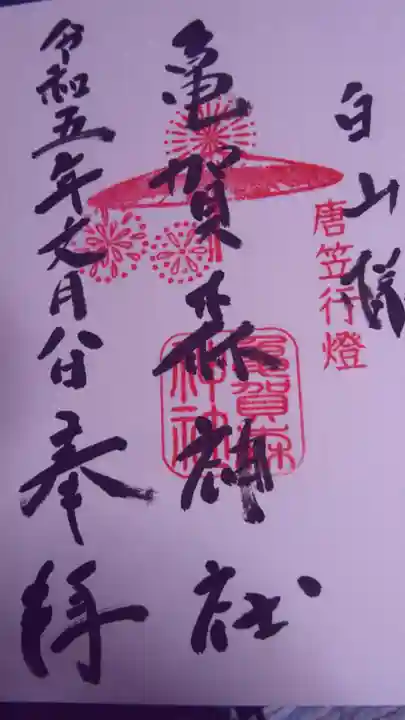 白山様
唐笠行燈
亀賀森神社
亀賀森
神社
令和五年文月八日
奉拝